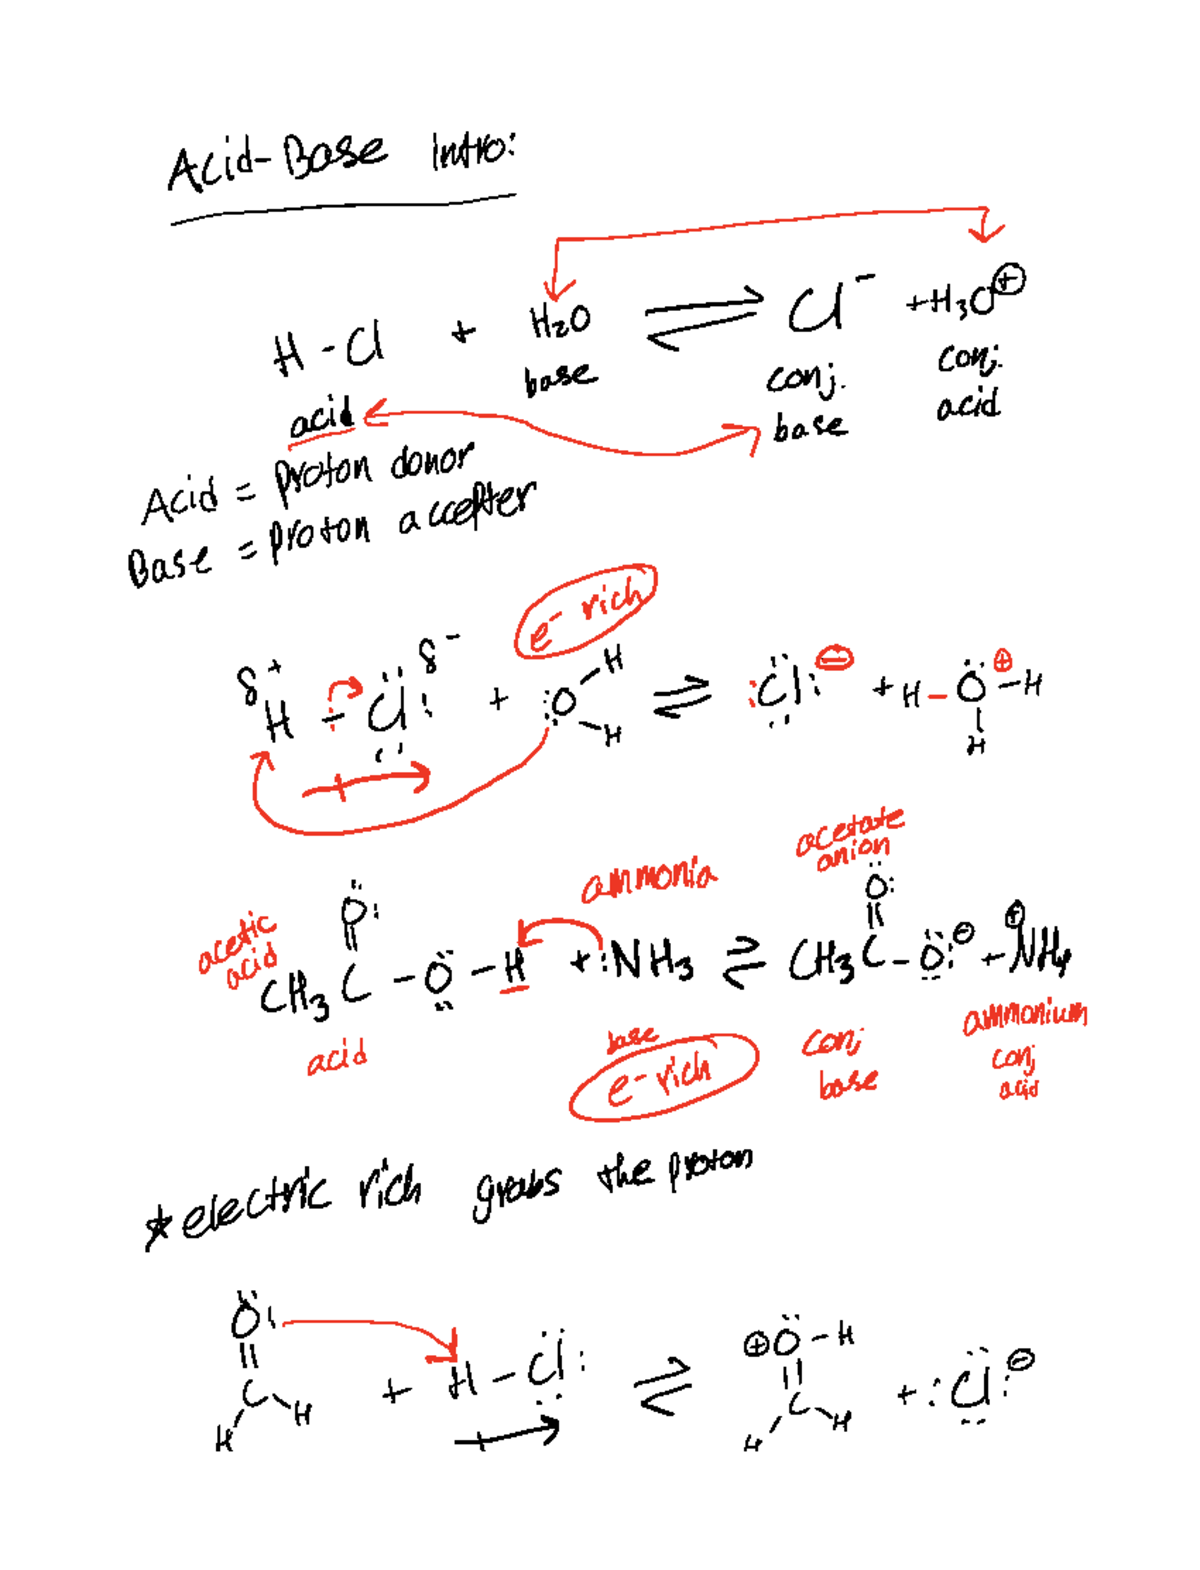 Acid-Base Intro:
H-Cl + H₂O ⇌ Cl⁻ + H₃O⊕
acid base conj. base conj. acid
Acid = proton donor
Base = proton accepter
e⁻ rich
δ⁺ δ⁻
H-Cl: + :O-H H ⇌ :Cl:⊖ + H-O⊕-H H
acetate anion
ammonia
acetic acid
O: O:
CH₃C-O-H + :NH₃ ⇌ CH₃C-O:⊖ + ⊕NH₄
acid base conj base ammonium conj acid
e⁻ rich
*electric rich grabs the proton
O: ⊕O-H
C + H-Cl: ⇌ C + :Cl:⊖
H H H H